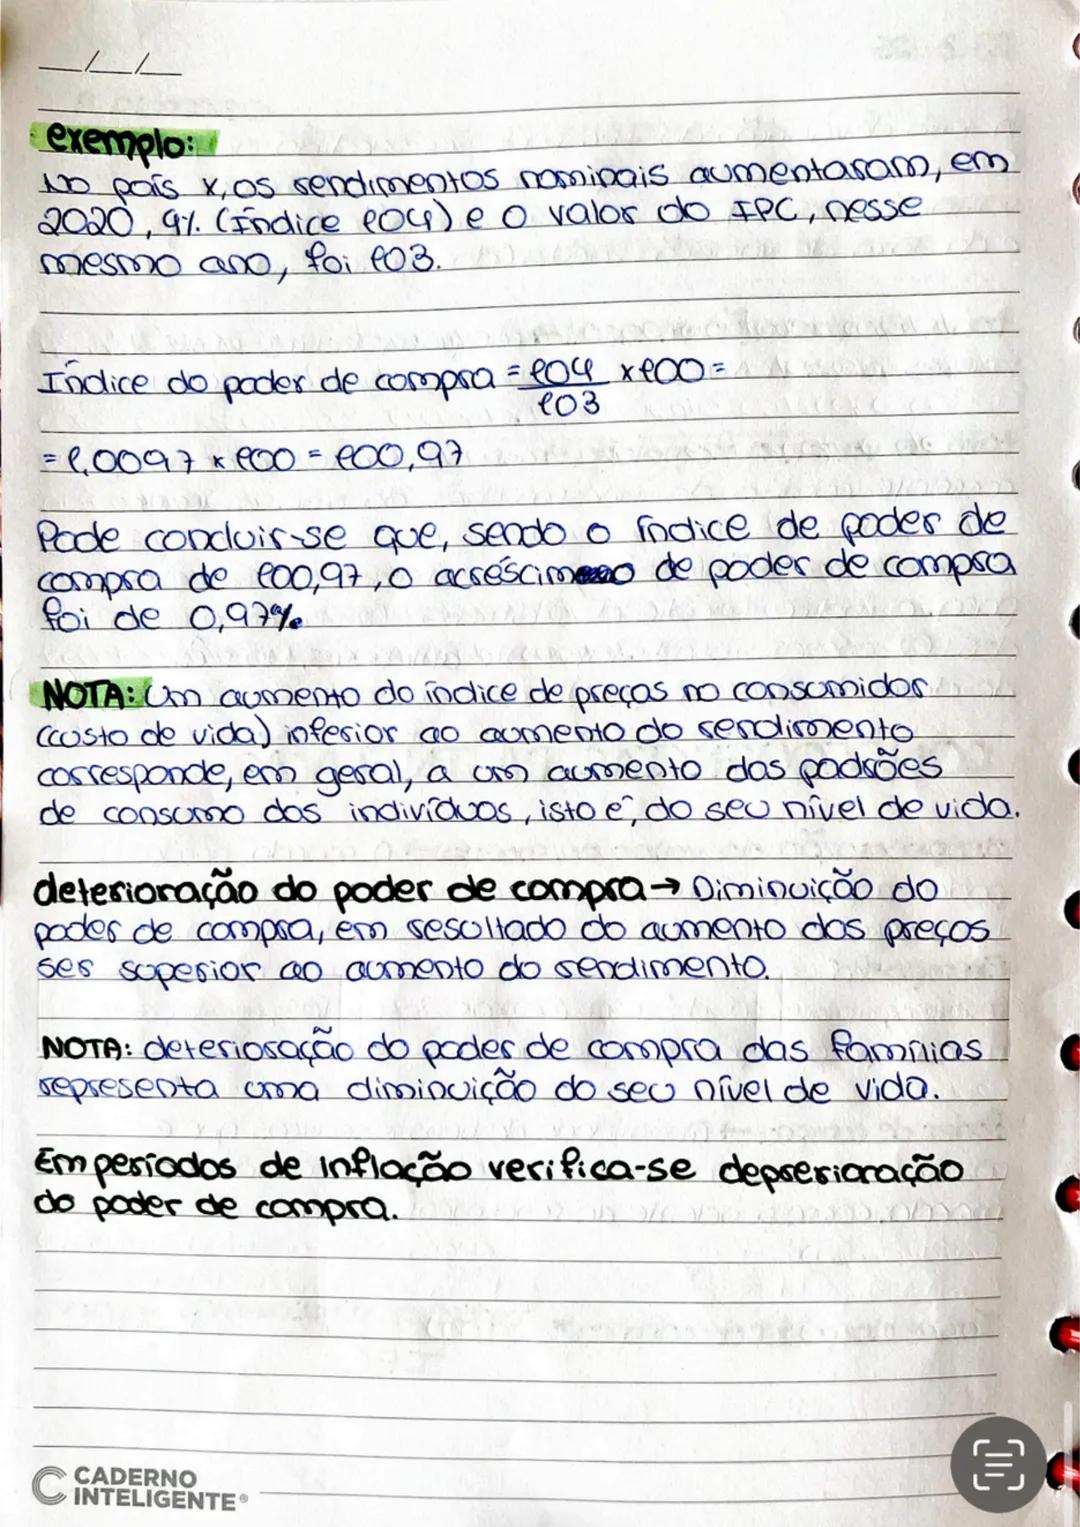 __/__/__
exemplo:
No país x, os rendimentos nominais aumentaram, em
2020, 4% (Índice 104) e o valor do IPC, nesse
mesmo ano, foi 103.
Índice do poder de compra = 104/103 x 100 =
= 1,0097 x 100 = 100,97
Pode concluir-se que, sendo o índice de poder de
compra de 100,97, o acréscimo de poder de compra
foi de 0,97%.
NOTA: Um aumento do índice de preços no consumidor
(custo de vida) inferior ao aumento do rendimento
corresponde, em geral, a um aumento dos padrões
de consumo dos indivíduos, isto é, do seu nível de vida.
deterioração do poder de compra → Diminuição do
poder de compra, em resultado do aumento dos preços
ser superior ao aumento do rendimento.
NOTA: deterioração do poder de compra das famílias
representa uma diminuição do seu nível de vida.
Em períodos de inflação verifica-se deprerioração
do poder de compra.
CADERNO
INTELIGENTE®